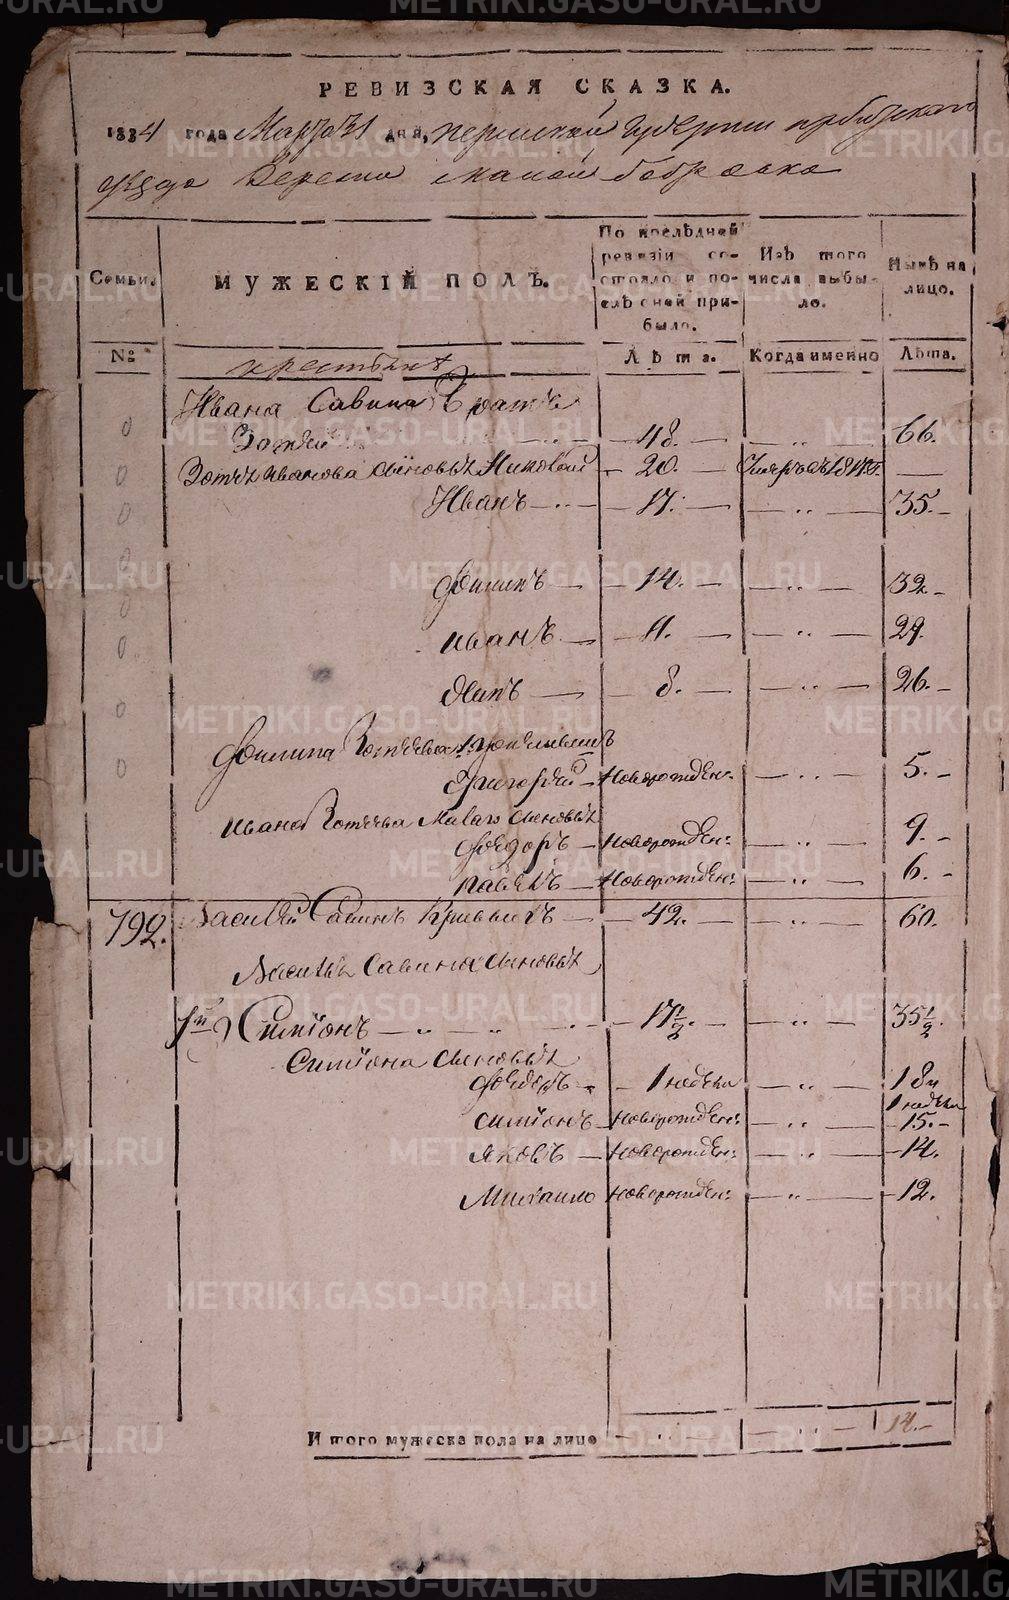 РЕВИЗСКАЯ СКАЗКА.
1834 года Марта 31 дня, Пермской Губернии Ирбитского
уезда деревни малой бобровка
Семьи.
МУЖЕСКІЙ ПОЛЪ.
По послѣдней ревизіи состояло и послѣ оной прибыло.
Изъ того числа выбыло.
Нынѣ на лицо.
№
Лѣта.
Когда именно
Лѣта.
крестьянъ
Ивана Савина братъ
Зотѣй 48. 66.
Зотѣя Иванова сыновья 20.
Иванъ 17. 35.
Филипъ 14. 32.
иванъ 11. 29.
8. 26.
Филипа Зотѣева
Григорѣй Новорожден: 5.
ивана Зотѣева Малаго сыновья
Феодоръ новорожден: 9.
павелъ новорожден: 6.
792. Василѣй Савинъ Кривыхъ 42. 60.
Василья Савина сыновья
1й Симіонъ 17½. 35½.
Симіона сыновья
Феодоръ 1 недѣли 18ть
1 недѣли
симіонъ новорожден: 15.
Яковъ новорожден: 14.
Михаило новорожден: 12.
Итого мужеска пола на лицо 14.
METRIKI.GASO-URAL.RU